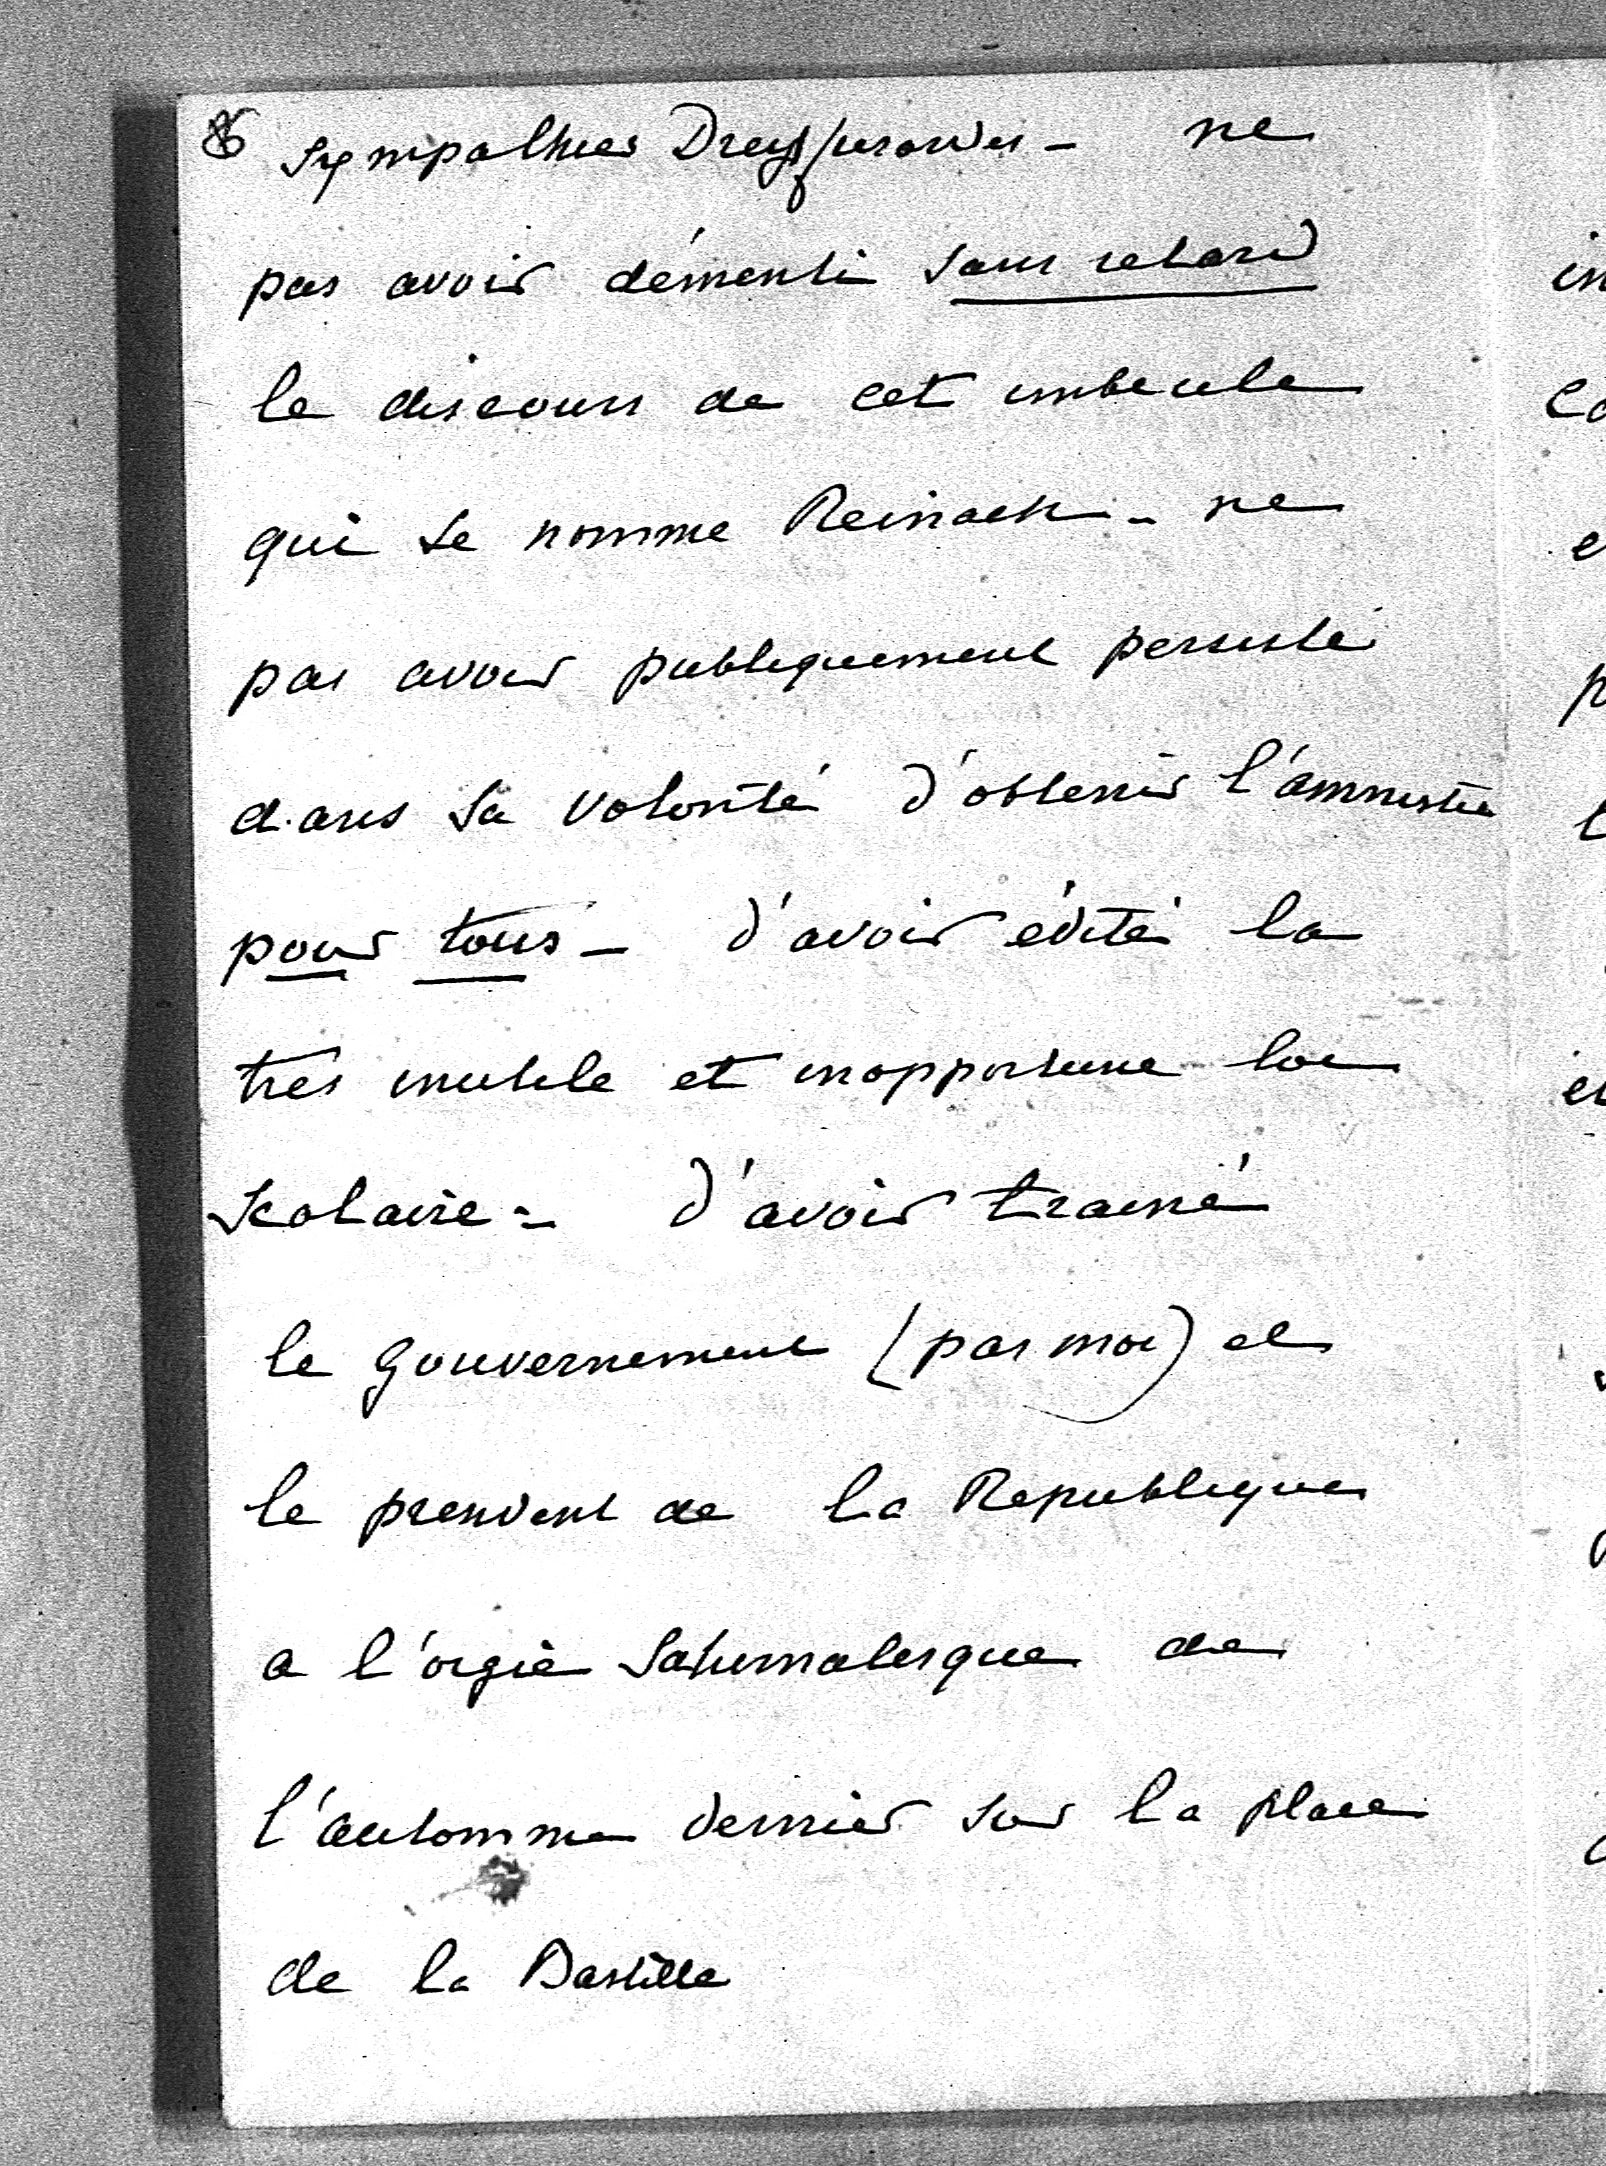 sympathies Dreyfusardes - ne
pas avoir démenti sans retard
le discours de cet imbecile
qui se nomme Reinach - ne
pas avoir publiquement persisté
dans sa volonté d'obtenir l'amnistie
pour tous - d'avoir édité la
très inutile et inopportune loi
scolaire - d'avoir trainé
le gouvernement (pas moi) et
le president de la Republique
a l'orgie saturnalesque de
l'automne dernier sur la place
de la Bastille